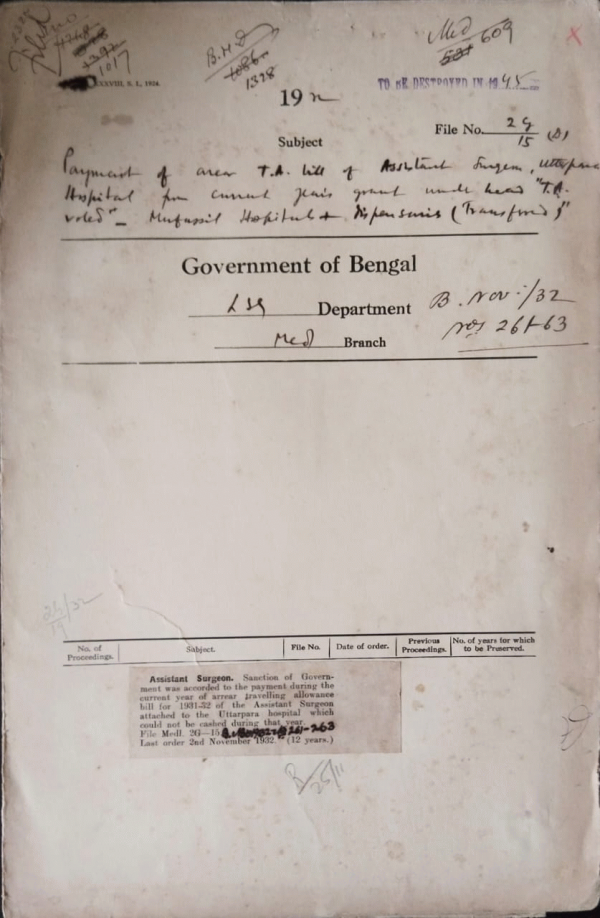 B.M.D
1328
Med 609
1017
XXXVIII, S. I., 1924.
TO BE DESTROYED IN 1945
19
File No. 2G/15 (1)
Subject
Payment of arear T.A. bill of Assistant Surgeon, Uttarpara
Hospital from current years grant under head "T.A.
voted" – Mufassil Hospitals + dispensaries (Transferred)"
Government of Bengal
LSG Department B. Nov./32
Med Branch Nos 261-63
No. of Proceedings. Subject. File No. Date of order. Previous Proceedings. No. of years for which to be Preserved.
Assistant Surgeon. Sanction of Govern-
ment was accorded to the payment during the
current year of arrear travelling allowance
bill for 1931-32 of the Assistant Surgeon
attached to the Uttarpara hospital which
could not be cashed during that year.
File Medl. 2G—15 261-263
Last order 2nd November 1932. (12 years.)
25/11